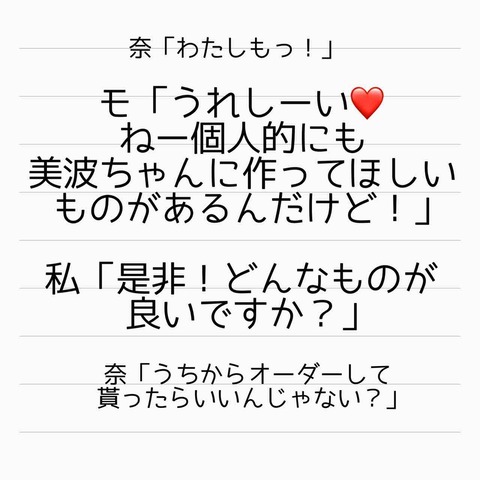 奈「わたしもっ！」
モ「うれしーい❤️
ねー個人的にも
美波ちゃんに作ってほしい
ものがあるんだけど！」
私「是非！どんなものが
良いですか？」
奈「うちからオーダーして
貰ったらいいんじゃない？」